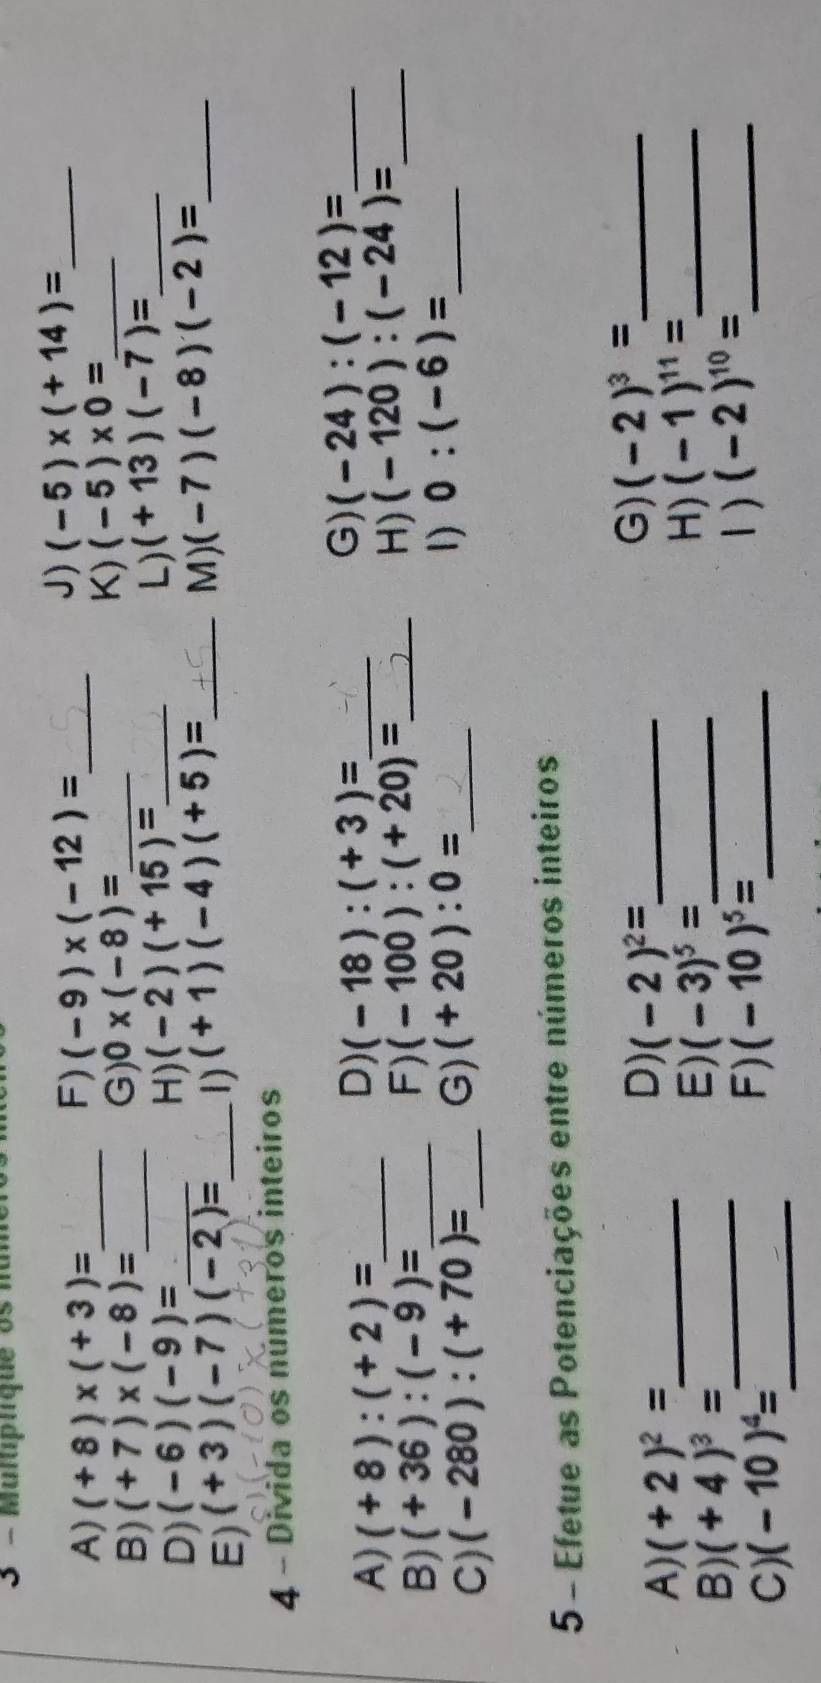 3 - Multiplique os
A) (+8) x (+3)= ____ F) (-9) x (-12)= ____ J) (-5) x (+14)= ____
B) (+7) x (-8)= ____ G)0 x (-8)= ____ K) (-5) x 0 = ____
D) (-6) (-9)= ____ H)(-2) (+15)= ____ L)(+13) (-7)= ____
E) (+3) (-7) (-2)= ____ I) (+1) (-4) (+5)= ____ M)(-7) (-8) (-2)= ____
(-10) x (+31)
4 - Divida os números inteiros
A) (+8) : (+2)= ____ D)(-18) : (+3)= ____ G)(-24) : (-12)= ____
B) (+36) : (-9)= ____ F)(-100) : (+20) = ____ H)(-120) : (-24)= ____
C) (-280) : (+70)= ____ G)(+20) : 0 = ____ I) 0 : (-6)= ____
5 - Efetue as Potenciações entre números inteiros
A)(+2)² = ____ D)(-2)²= ____ G)(-2)³ = ____
B)(+4)³ = ____ E)(-3)⁵ = ____ H)(-1)¹¹ = ____
C)(-10)⁴= ____ F)(-10)⁵= ____ I) (-2)¹⁰ = ____